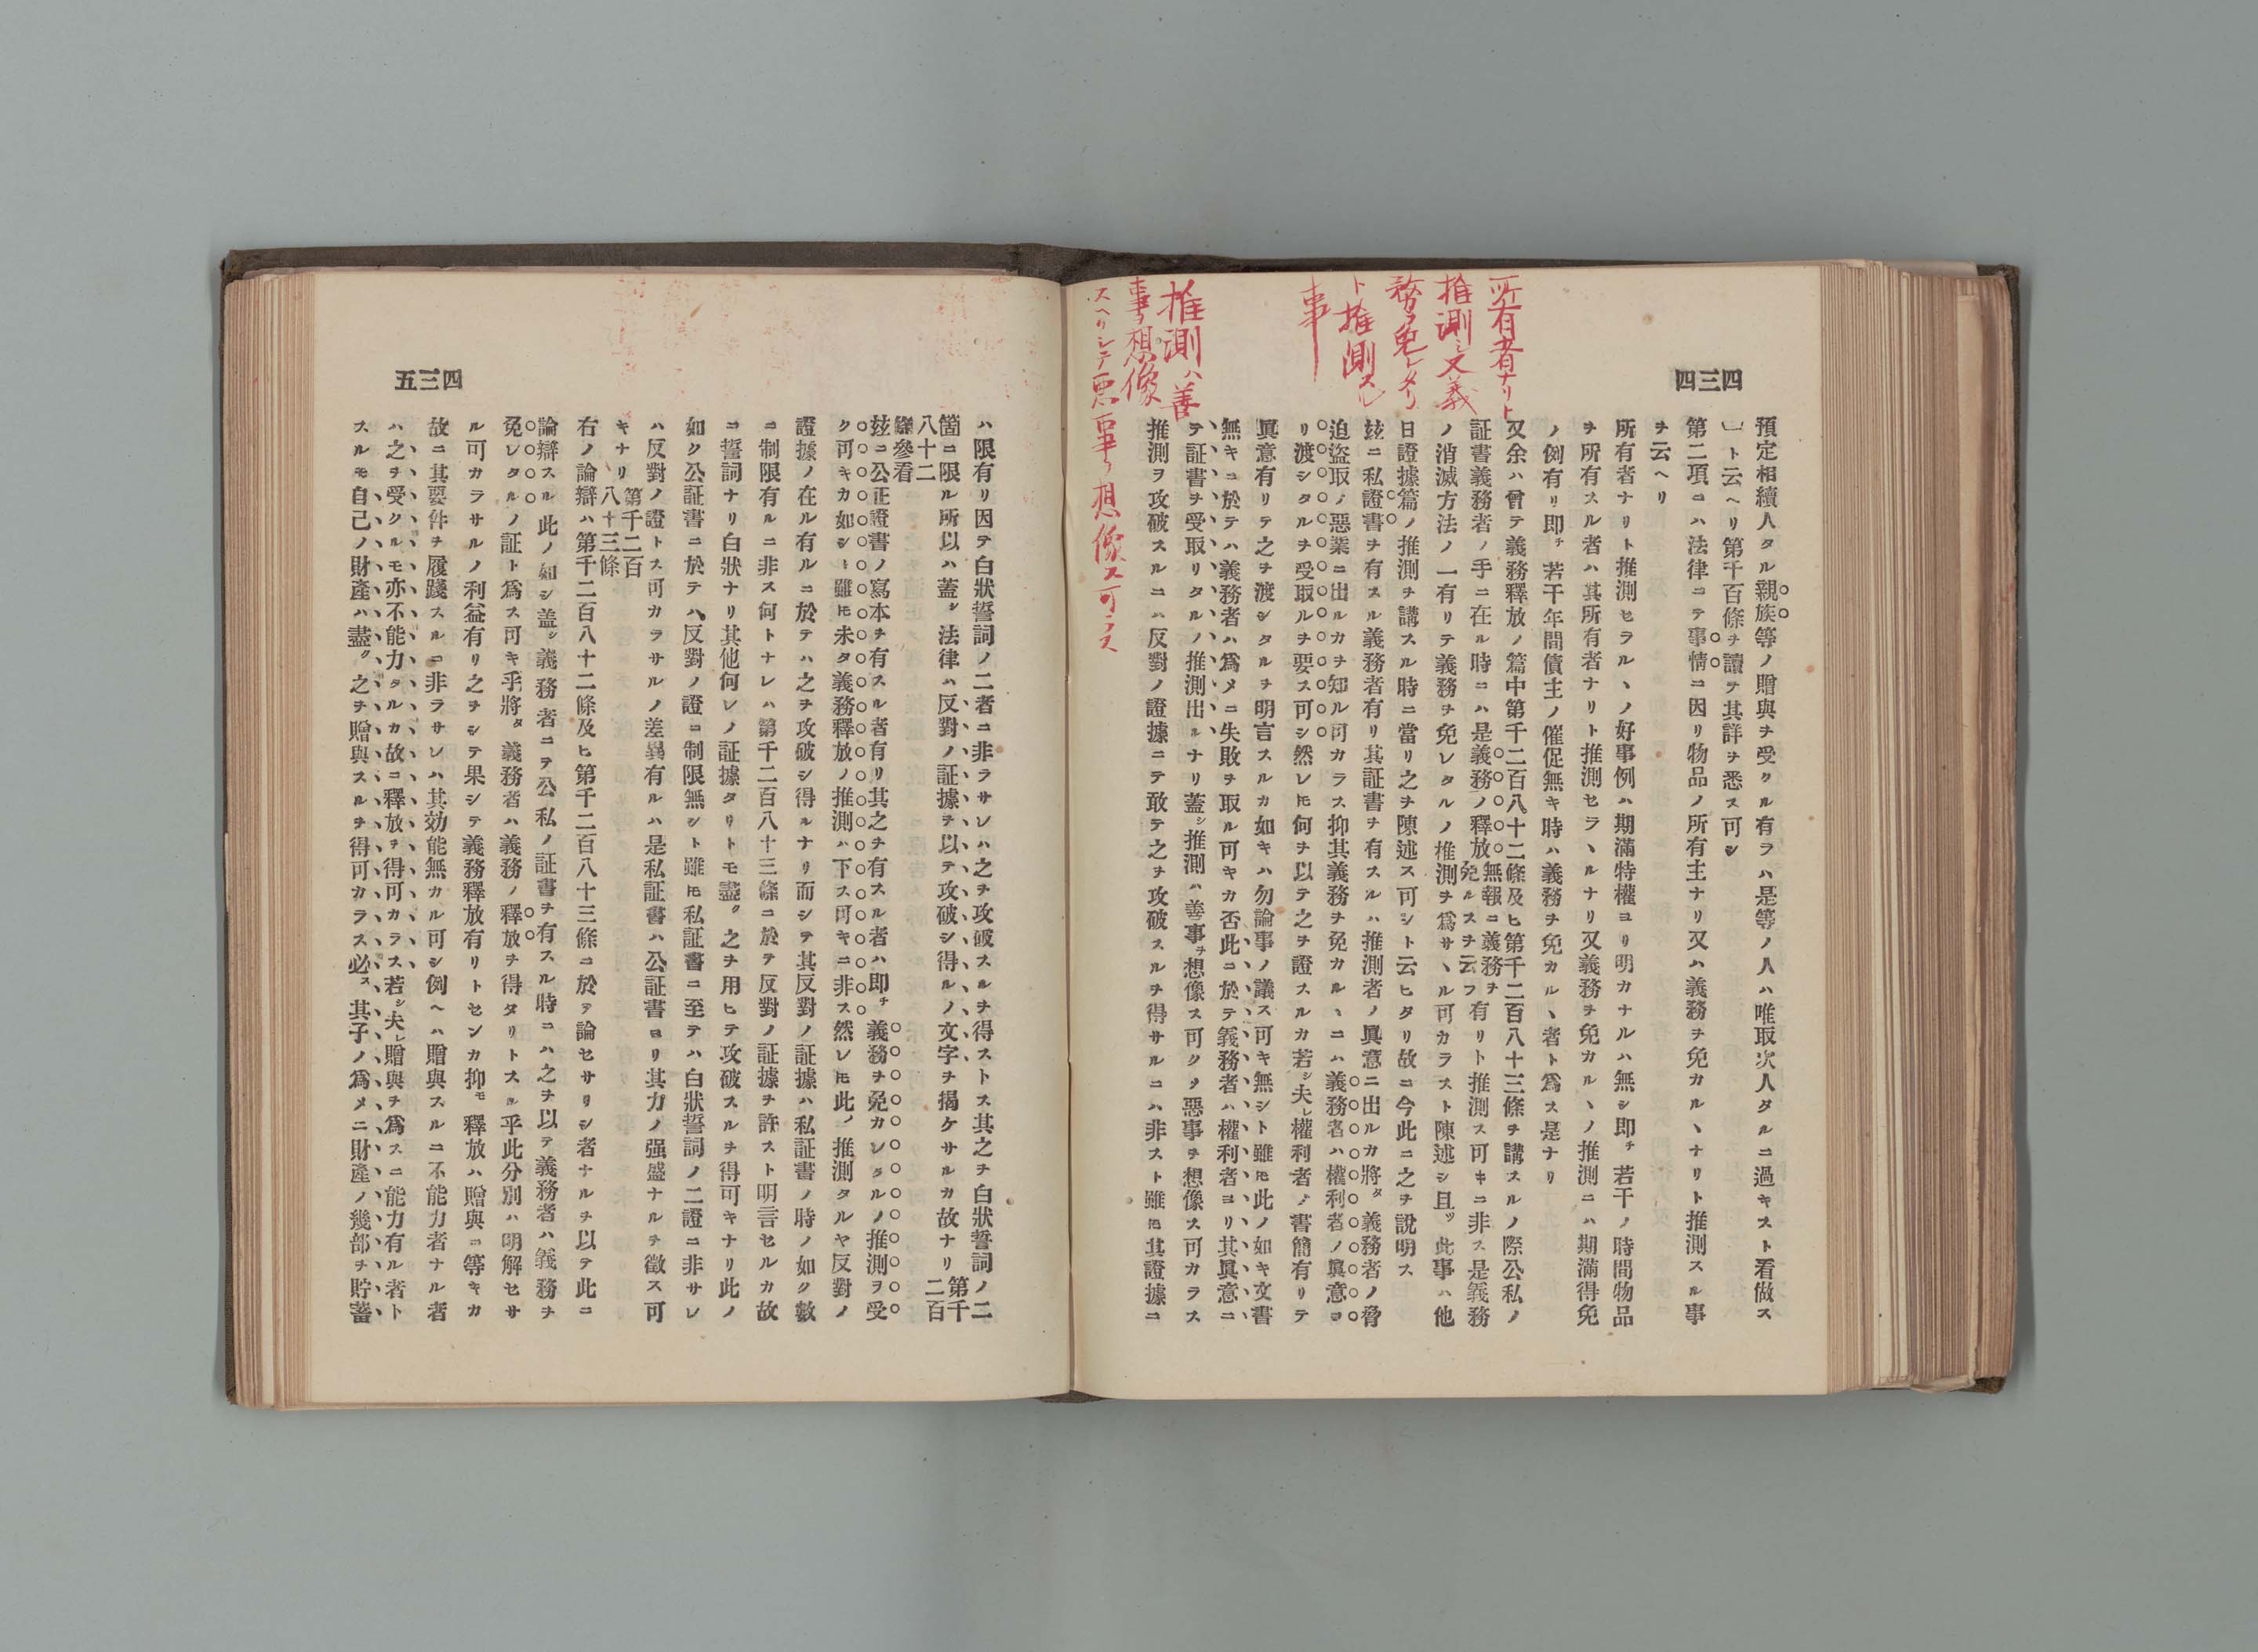 四三四
所有者ナリト
推測シ又義
務ヲ免レタリ
ト推測スル
事
推測ハ善
事ヲ想像
スヘクシテ悪事ヲ想像ス可ラス
預定相續人タル親族等ノ贈與ヲ受クル有ラハ是等ノ人ハ唯取次人タルニ過キスト看做ス
」ト云ヘリ第千百條ヲ讀テ其詳ヲ悉ス可シ
第二項ニハ法律ニテ事情ニ因リ物品ノ所有主ナリ又ハ義務ヲ免カルヽナリト推測スル事
ヲ云ヘリ
所有者ナリト推測セラルヽノ好事例ハ期滿特權ヨリ明カナルハ無シ即チ若干ノ時間物品
ヲ所有スル者ハ其所有者ナリト推測セラヽルナリ又義務ヲ免カルヽノ推測ニハ期滿得免
ノ例有リ即チ若干年間債主ノ催促無キ時ハ義務ヲ免カルヽ者ト爲ス是ナリ
又余ハ曾テ義務釋放ノ篇中第千二百八十二條及ヒ第千二百八十三條ヲ講スルノ際公私ノ
証書義務者ノ手ニ在ル時ニハ是義務ノ釋放無報ニ義務ヲ免ルスヲ云フ有リト推測ス可キニ非ス是義務
ノ消滅方法ノ一有リテ義務ヲ免レタルノ推測ヲ爲サヽル可カラスト陳述シ且ツ此事ハ他
日證據篇ノ推測ヲ講スル時ニ當リ之ヲ陳述ス可シト云ヒタリ故ニ今此ニ之ヲ說明ス
玆ニ私證書ヲ有スル義務者有リ其証書ヲ有スルハ推測者ノ眞意ニ出ルカ將タ義務者ノ脅
迫盜取ノ惡業ニ出ルカヲ知ル可カラス抑其義務ヲ免カルヽニハ義務者ハ權利者ノ眞意ヨ
リ渡シタルヲ受取ルヲ要ス可シ然レ𪜈何ヲ以テ之ヲ證スルカ若シ夫レ權利者ノ書簡有リテ
眞意有リテ之ヲ渡シタルヲ明言スルカ如キハ勿論事ノ議ス可キ無シト雖𪜈此ノ如キ文書
無キニ於テハ義務者ハ爲メニ失敗ヲ取ル可キカ否此ニ於テ義務者ハ權利者ヨリ其眞意ニ
テ証書ヲ受取リタルノ推測出ルナリ蓋シ推測ハ善事ヲ想像ス可ク惡事ヲ想像ス可カラス
推測ヲ攻破スルニハ反對ノ證據ニテ敢テ之ヲ攻破スルヲ得サルニハ非スト雖𪜈其證據ニ
四三五
ハ限有リ因テ白狀誓詞ノ二者ニ非ラサレハ之ヲ攻破スルヲ得ストス其之ヲ白狀誓詞ノ二
箇ニ限ル所以ハ蓋シ法律ハ反對ノ証據ヲ以テ攻破シ得ルノ文字ヲ揭ケサルカ故ナリ第千二百
八十二條參看
玆ニ公正證書ノ寫本ヲ有スル者有リ其之ヲ有スル者ハ即チ義務ヲ免カレタルノ推測ヲ受
ク可キカ如シト雖𪜈未タ義務釋放ノ推測ハ下ス可キニ非ス然レ𪜈此ノ推測タルヤ反對ノ
證據ノ在ル有ルニ於テハ之ヲ攻破シ得ルナリ而シテ其反對ノ証據ハ私証書ノ時ノ如ク數
ニ制限有ルニ非ス何トナレハ第千二百八十三條ニ於テ反對ノ証據ヲ許スト明言セルカ故
ニ誓詞ナリ白狀ナリ其他何レノ証據タリトモ盡ク之ヲ用ヒテ攻破スルヲ得可キナリ此ノ
如ク公証書ニ於テハ反對ノ證ニ制限無シト雖𪜈私証書ニ至テハ白狀誓詞ノ二證ニ非サレ
ハ反對ノ證トス可カラサルノ差異有ルハ是私証書ハ公証書ヨリ其力ノ强盛ナルヲ徵ス可
キナリ第千二百八十三條
右ノ論辯ハ第千二百八十二條及ヒ第千二百八十三條ニ於テ論セサリシ者ナルヲ以テ此ニ
論辯スル此ノ如シ蓋シ義務者ニテ公私ノ証書ヲ有スル時ニハ之ヲ以テ義務者ハ義務ヲ
免レタルノ証ト爲ス可キ乎將タ義務者ハ義務ノ釋放ヲ得タリトスル乎此分別ハ明解セサ
ル可カラサルノ利益有リ之ヲシテ果シテ義務釋放有リトセンカ抑モ釋放ハ贈與ニ等キカ
故ニ其要件ヲ履踐スルニ非ラサレハ其効能無カル可シ例ヘハ贈與スルニ不能力者ナル者
ハ之ヲ受クルモ亦不能力タルカ故ニ釋放ヲ得可カラス若シ夫レ贈與ヲ爲スニ能力有ル者ト
スルモ自己ノ財產ハ盡ク之ヲ贈與スルヲ得可カラス必ス其子ノ爲メニ財產ノ幾部ヲ貯蓄